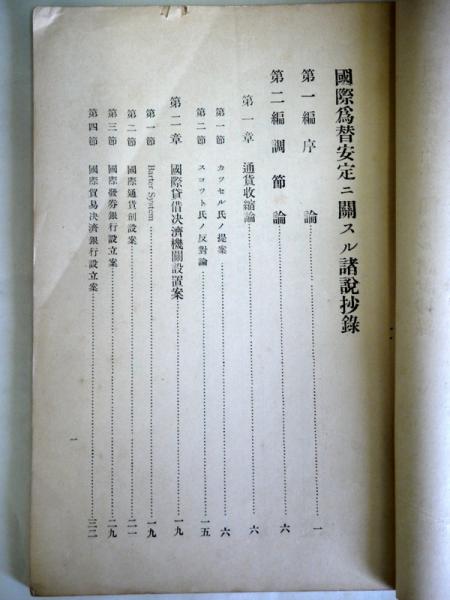 國際爲替安定ニ關スル諸說抄錄
第一編 序論……一
第二編 調節論……六
第一章 通貨收縮論……六
第一節 カッセル氏ノ提案……六
第二節 スコット氏ノ反對論……一五
第二章 國際貸借決濟機關設置案……一九
第一節 Barter System……一九
第二節 國際通貨創設案……二一
第三節 國際發券銀行設立案……二九
第四節 國際貿易決濟銀行設立案……三二
一